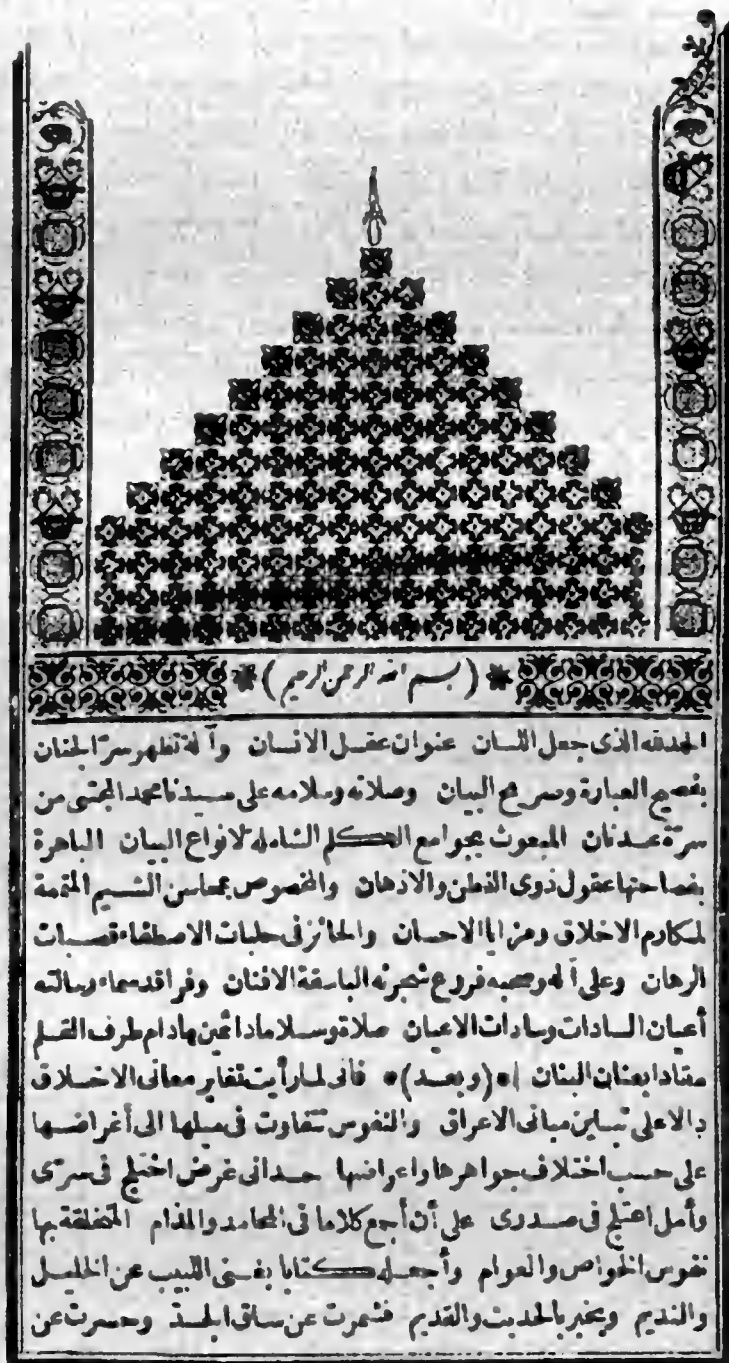 *(بسم الله الرحمن الرحيم)*
الحمدلله الذى جعل اللسان عنوان عقل الانسان وآلة تظهر سرّ الجنان
بفصيح العبارة وصريح البيان وصلاته وسلامه على سيدنا محمد المجتبى من
سرّة عدنان المبعوث بجوامع الكلم الشاملة لانواع البيان الباهرة
بفصاحتها عقول ذوى الفطن والاذهان والمخصوص بمحاسن الشيم المتممة
لمكارم الاخلاق ومزايا الاحسان والحائز فى حلبات الاصطفاء قصبات
الرهان وعلى آله وصحبه فروع شجرته الباسقة الافنان وفراقد سماء رسالته
أعيان السادات وسادات الاعيان صلاة وسلاما دائمين مادام طرف القلم
منقادا بعنان البنان *(وبعد)* فانى لما رأيت تغاير معانى الاخلاق
دالا على تباين مبانى الاعراق والنفوس تتفاوت فى ميلها الى أغراضها
على حسب اختلاف جواهرها واعراضها حدانى غرض اختلج فى سرّى
وأمل اعتلج فى صدرى على أن أجمع كلاما فى المحامد والمذام المتخلقة بها
نفوس الخواص والعوام وأجعله كتابا يغنى اللبيب عن الخليل
والنديم ويخبر بالحديث والقديم فشمرت عن ساق الجدّ وحسرت عن